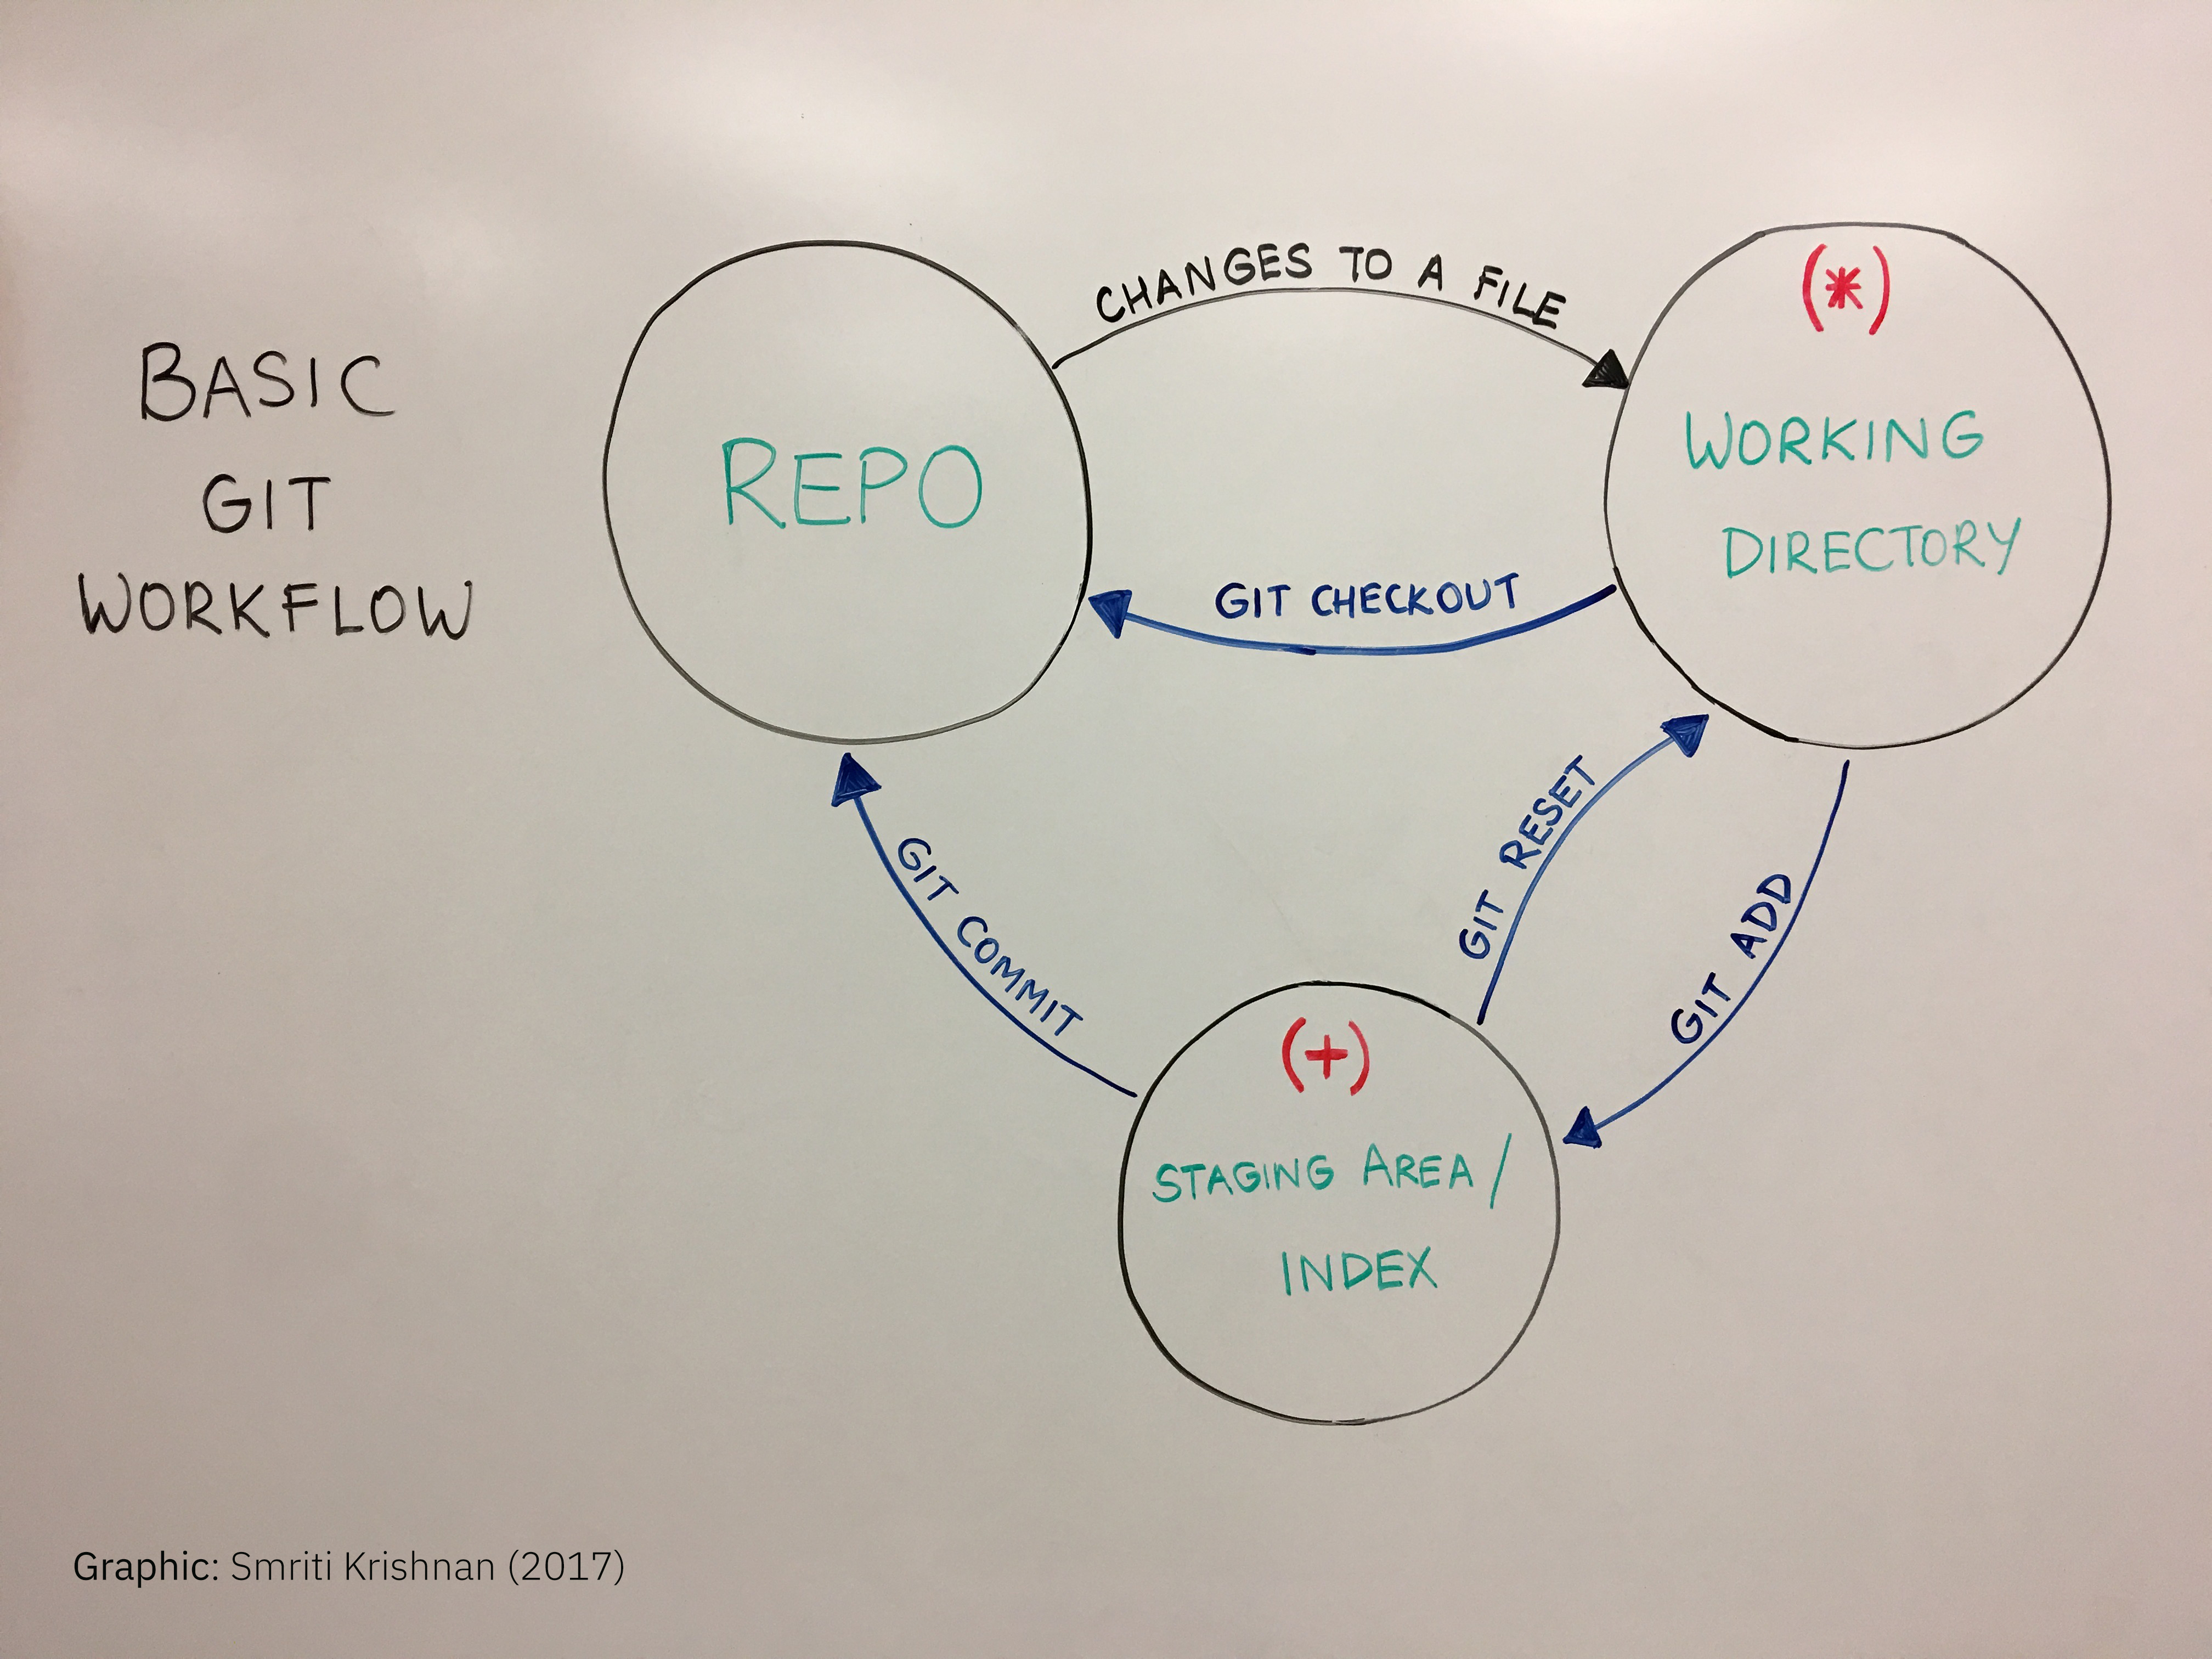 BASIC
GIT
WORKFLOW
REPO
CHANGES TO A FILE
(*)
WORKING
DIRECTORY
GIT CHECKOUT
GIT RESET
GIT ADD
GIT COMMIT
(+)
STAGING AREA/
INDEX
Graphic: Smriti Krishnan (2017)